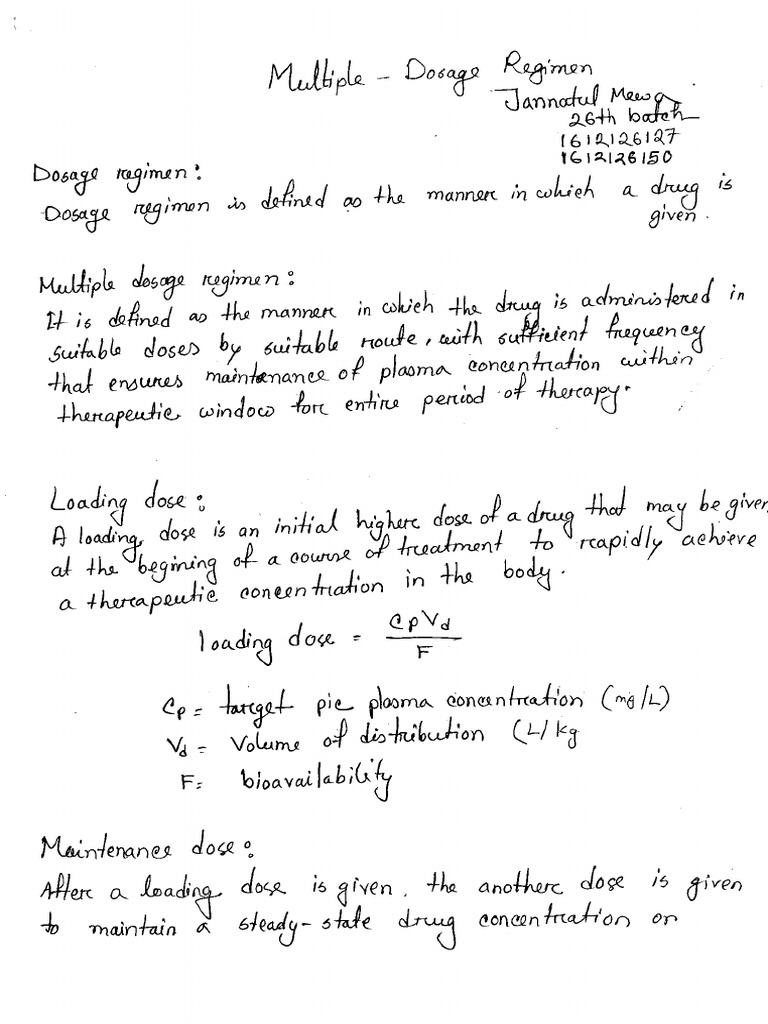 Multiple - Dosage Regimen
Jannatul Mewa
26th batch
1612126127
1612126150
Dosage regimen:
Dosage regimen is defined as the manner in which a drug is
given.
Multiple dosage regimen:
It is defined as the manner in which the drug is administered in
suitable doses by suitable route, with sufficient frequency
that ensures maintenance of plasma concentration within
therapeutic window for entire period of therapy.
Loading dose:
A loading dose is an initial higher dose of a drug that may be given,
at the begining of a course of treatment to rapidly achieve
a therapeutic concentration in the body.
loading dose = CpVd / F
Cp = target pic plasma concentration (mg/L)
Vd = Volume of distribution (L/kg
F = bioavailability
Maintenance dose:
After a loading dose is given, the another dose is given
to maintain a steady-state drug concentration or